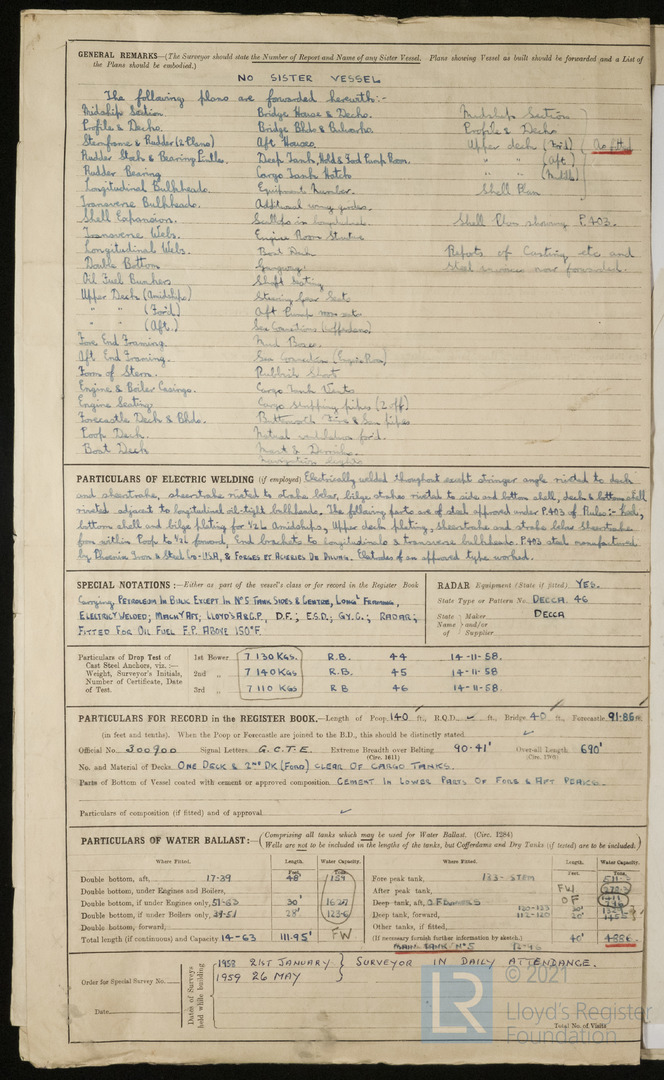 GENERAL REMARKS—(The Surveyor should state the Number of Report and Name of any Sister Vessel. Plans showing Vessel as built should be forwarded and a List of
the Plans should be embodied.)
NO SISTER VESSEL
The following plans are forwarded herewith:-
Midship Section. Bridge House & Decks. Midship Section
Profile & Decks. Bridge Blds & Bulwarks. Profile & Decks
Sternframe & Rudder (2 Plans) Aft Houses. Upper deck (For'd) As fitted
Rudder Stock & Bearing Deep Tank, Hold & Ford Pump Room. " " (Aft)
Rudder Bearing Cargo Tank Hatch " " (Middle)
Longitudinal Bulkheads. Equipment Number. Shell Plan
Transverse Bulkheads. Additional
Shell Expansion. Scallops in Shell Plan showing P.403.
Transverse Webs. Engine Room
Longitudinal Webs. Boat Deck Reports of Casting etc and
Double Bottom Gangway steel now forwarded.
Oil Fuel Bunkers Shaft
Upper Deck (Amidships) Steering Gear Seat
" " (For'd) Aft Pump
" " (Aft.) Sea Connections
Fore End Framing. Mud Boxes
Aft End Framing. Sea Connection (Engine Room)
Form of Stern. Rubbish Shoot
Engine & Boiler Casings. Cargo Tank Vents
Engine Seating. Cargo stripping pipes (2 off)
Forecastle Deck & Blds. Butterworth & pipes
Poop Deck. Natural ventilation for'd.
Boat Deck Mast &
Navigation lights
PARTICULARS OF ELECTRIC WELDING (if employed) Electrically welded throughout except stringer angle riveted to deck
and sheerstrake, sheerstrake riveted to strake below, bilge strakes riveted to side and bottom shell, deck & bottom shell
riveted adjacent to longitudinal oil-tight bulkheads. The following parts are of steel approved under P.403 of Rules:- keel,
bottom shell and bilge plating for ½L Amidships, Upper deck plating, sheerstrake and strake below sheerstrake
from within Poop to forward, End brackets to longitudinals & transverse bulkheads. P.403 steel manufactured
by Phoenix Iron & Steel Co - USA, & FORGES ET ACIERIES DE Electrodes of an approved type worked.
SPECIAL NOTATIONS:—Either as part of the vessel's class or for record in the Register Book
Carrying PETROLEUM IN BULK EXCEPT IN No 5 TANK SIDES & CENTRE, LONGL FRAMING,
ELECTRICY WELDED; MACHY AFT; LLOYD'S A&CP, D.F.; E.S.D.; GY.C.; RADAR;
FITTED FOR OIL FUEL F.P. ABOVE 150°F.
RADAR Equipment (State if fitted) YES.
State Type or Pattern No. DECCA. 46
State Name Maker and/or of Supplier DECCA
Particulars of Drop Test of
Cast Steel Anchors, viz. :—
Weight, Surveyor's Initials,
Number of Certificate, Date
of Test.
1st Bower 7 130 KGS. R.B. 44 14-11-58.
2nd " 7 140 KGS R.B. 45 14-11-58
3rd " 7 110 KGS R B 46 14-11-58.
PARTICULARS FOR RECORD in the REGISTER BOOK.—Length of Poop 140 ft., R.Q.D. ft., Bridge 40 ft., Forecastle 91·86 ft.
(in feet and tenths). When the Poop or Forecastle are joined to the B.D., this should be distinctly stated.
Official No. 300900 Signal Letters G.C.T.E. Extreme Breadth over Belting 90·41' Over-all Length 690'
(Circ. 1611)
No. and Material of Decks ONE DECK & 2ND DK (FORD) CLEAR OF CARGO TANKS.
Parts of Bottom of Vessel coated with cement or approved composition CEMENT IN LOWER PARTS OF FORE & AFT PEAKS.
Particulars of composition (if fitted) and of approval
PARTICULARS OF WATER BALLAST:—(Comprising all tanks which may be used for Water Ballast. (Circ. 1284)
Wells are not to be included in the lengths of the tanks, but Cofferdams and Dry Tanks (if tested) are to be included.)
Where Fitted. Length. Water Capacity. Where Fitted. Length. Water Capacity.
Feet. Tons. Feet. Tons.
Double bottom, aft, 17-39 48' Fore peak tank, 133-STEM
Double bottom, under Engines and Boilers, After peak tank, FW
Double bottom, if under Engines only, 51-63 30' Deep tank, aft, O.F. BUNKERS OF
Double bottom, if under Boilers only, 39-51 28' Deep tank, forward,
Double bottom, forward, Other tanks, if fitted,
Total length (if continuous) and Capacity 14-63 111.95' FW (If necessary furnish further information by sketch.) 40'
MAIN TANK No 5
Order for Special Survey No.
Date
Dates of Surveys held while building
1958 21ST JANUARY
1959 26 MAY
SURVEYOR IN DAILY ATTENDANCE.
Total No. of Visits
© 2021
LR
Lloyd's Register
Foundation